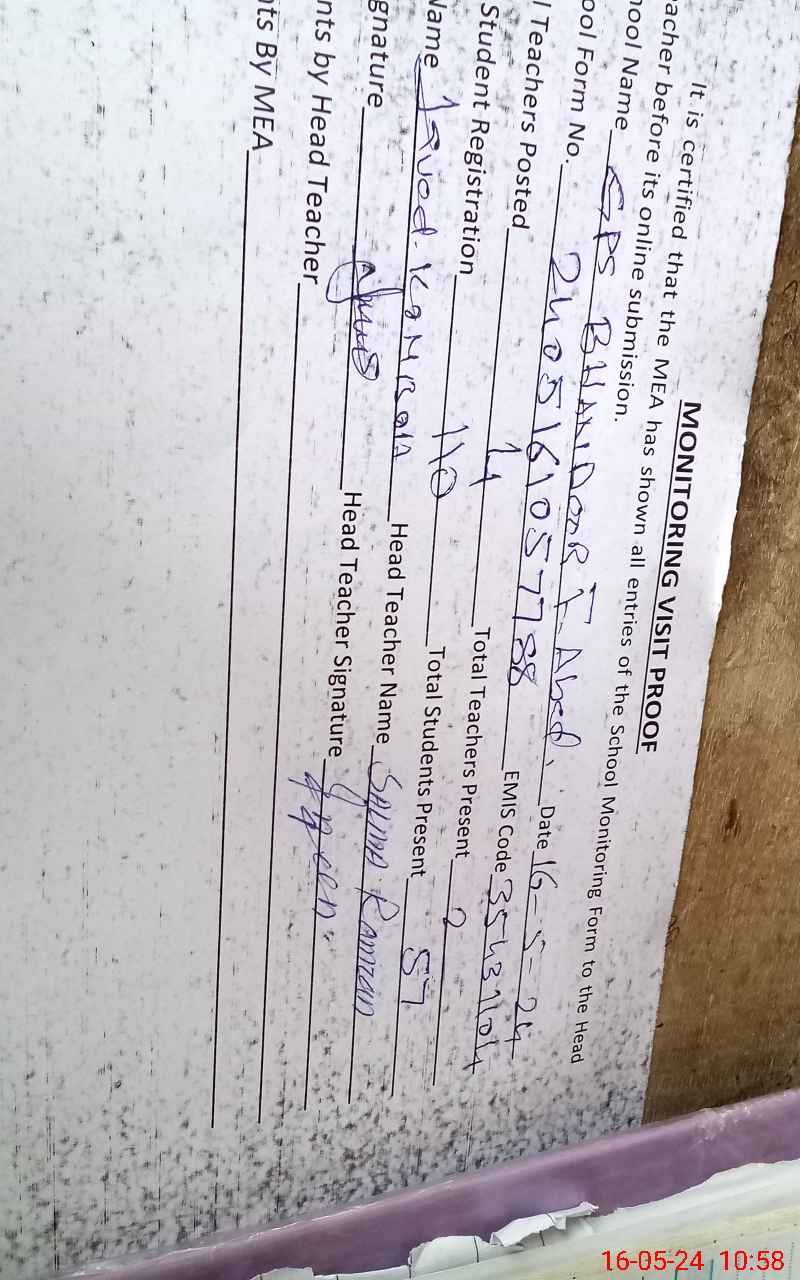 MONITORING VISIT PROOF
It is certified that the MEA has shown all entries of the School Monitoring Form to the Head
acher before its online submission.
hool Name GPS Date 16-5-24
ool Form No. 2405161057788 EMIS Code 35431704
l Teachers Posted 4 Total Teachers Present 2
Student Registration 110 Total Students Present 57
Name Javed Kamran Head Teacher Name SALMA Ramzan
gnature Head Teacher Signature
nts by Head Teacher
nts By MEA
16-05-24 10:58